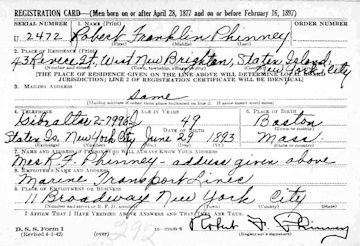 REGISTRATION CARD—(Men born on or after April 28, 1877 and on or before February 16, 1897)
SERIAL NUMBER 1. NAME (Print) ORDER NUMBER
U 2472 Robert Franklin Phinney
(First) (Middle) (Last)
2. PLACE OF RESIDENCE (Print)
43 St, West New Brighton, Staten Island, New York City
(Number and street) (Town, township, village, or city) (County) (State)
[THE PLACE OF RESIDENCE GIVEN ON THE LINE ABOVE WILL DETERMINE LOCAL BOARD JURISDICTION; LINE 2 OF REGISTRATION CERTIFICATE WILL BE IDENTICAL]
3. MAILING ADDRESS
Same
[Mailing address if other than place indicated on line 2. If same insert word same]
4. TELEPHONE 5. AGE IN YEARS 6. PLACE OF BIRTH
Gibraltar 2-7996J 49 Boston
DATE OF BIRTH
Staten Is. New York City June 29 1893 Mass
7. NAME AND ADDRESS OF PERSON WHO WILL ALWAYS KNOW YOUR ADDRESS
Mrs R. F. Phinney - address given above
8. EMPLOYER'S NAME AND ADDRESS
Marine Transport Lines
9. PLACE OF EMPLOYMENT OR BUSINESS
11 Broadway New York City
(Number and street or R. F. D. number) (Town) (County) (State)
I AFFIRM THAT I HAVE VERIFIED ABOVE ANSWERS AND THAT THEY ARE TRUE.
D. S. S. Form 1
(Revised 4-1-42) (over)
Robert F. Phinney
(Registrant's signature)